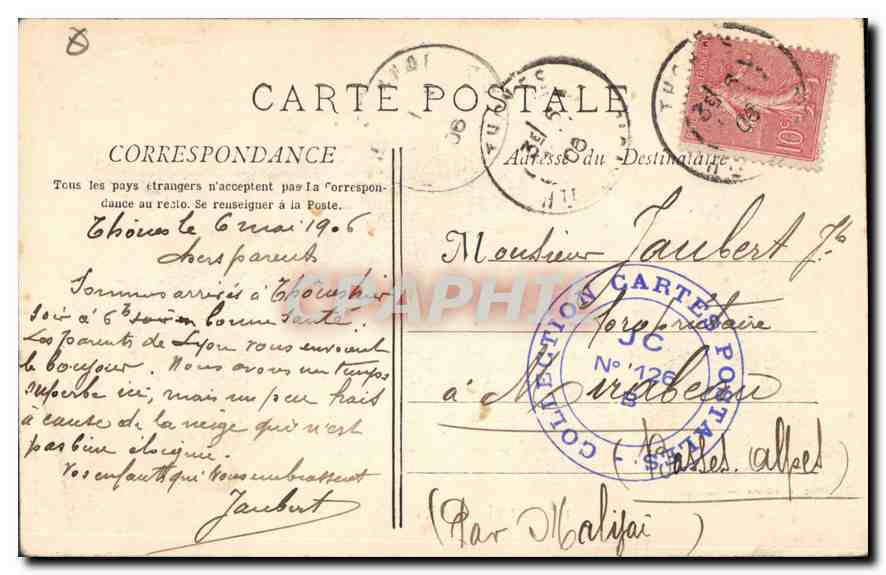 CARTE POSTALE
CORRESPONDANCE
Tous les pays étrangers n'acceptent pas la Correspon-
dance au recto. Se renseigner à la Poste.
Thônes le 6 mai 1906
chers parents
Sommes arrivés à Thônes hier
soir à 6h soir en bonne santé.
Les parents de Lyon vous envoient
le bonjour. Nous avons un temps
superbe ici, mais un peu frais
à cause de la neige qui n'est
pas bien éloignée.
Vos enfants qui vous embrassent
Jaubert
Adresse du Destinataire
Monsieur Jaubert Jh
propriétaire
à Mirabeau
(Basses-Alpes)
(Par Malijai)
COLLECTION CARTES POSTALES
JC
N° 126
B
THONES
06
10c
CPAPHIL